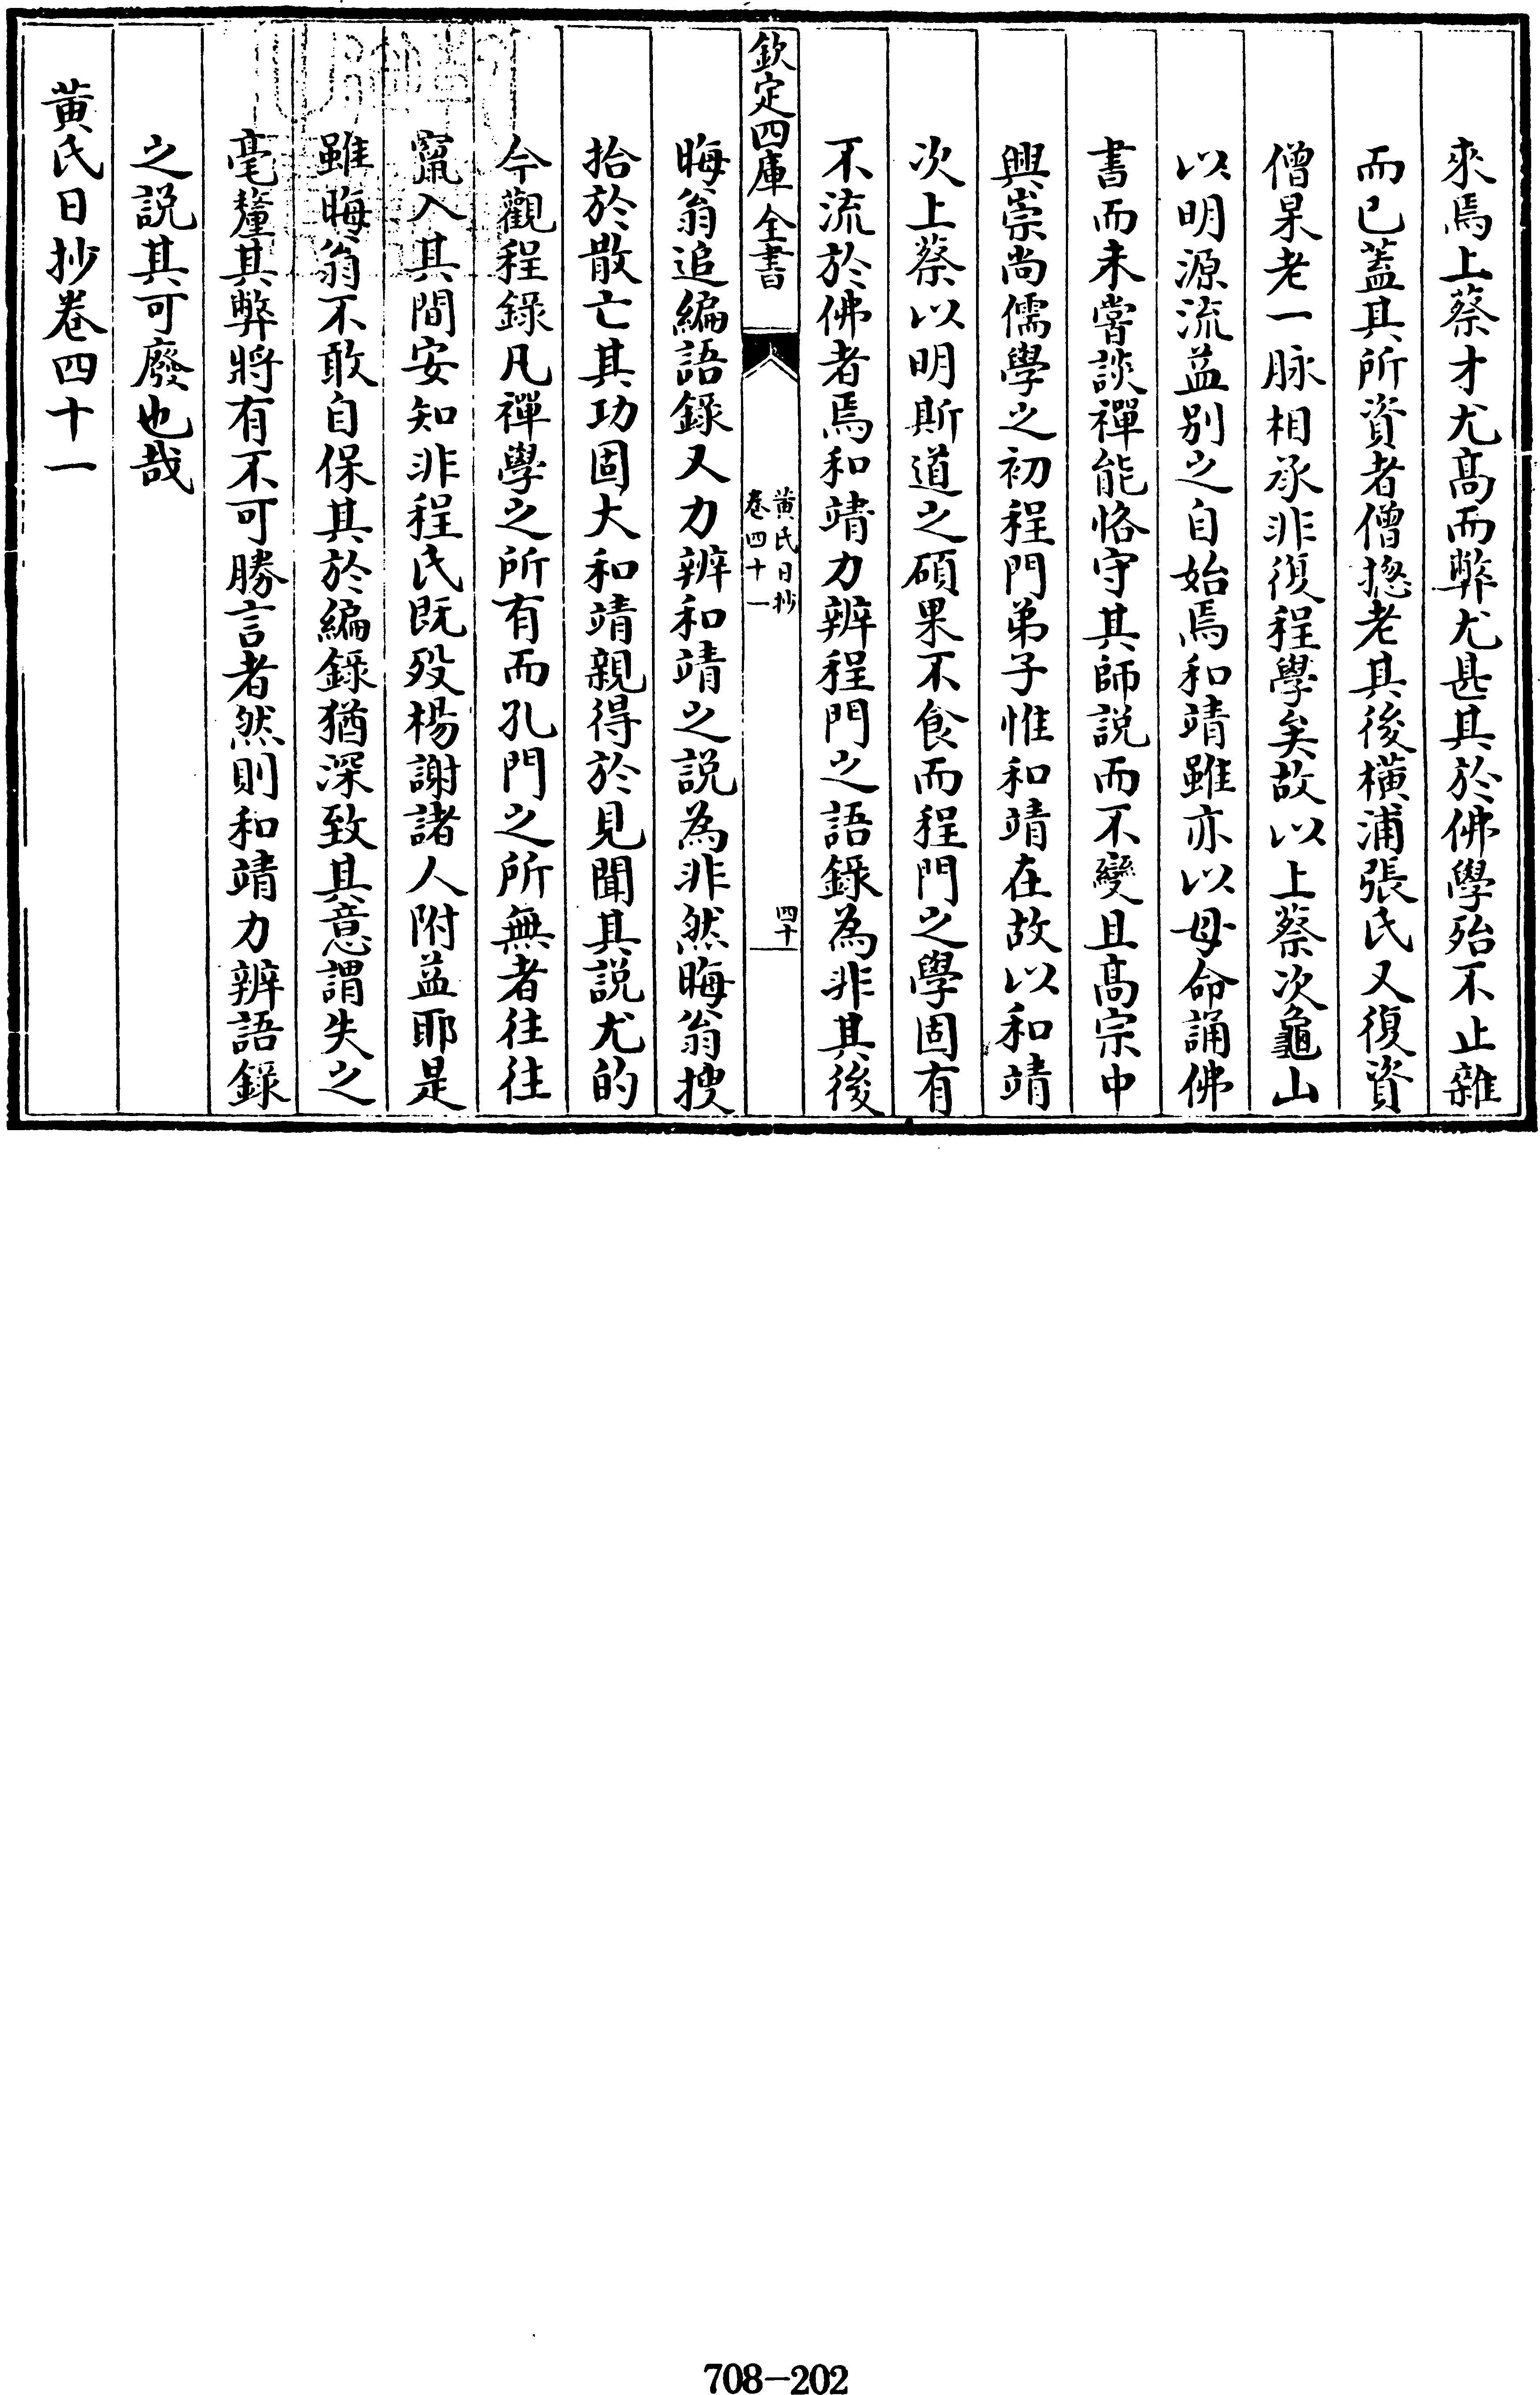 來焉上蔡才尤髙而弊尤甚其於佛學殆不止雜
而已蓋其所資者僧揔老其後橫浦張氏又復資
僧杲老一脉相承非復程學矣故以上蔡次龜山
以明源流益别之自始焉和靖雖亦以母命誦佛
書而未嘗談禪能恪守其師説而不變且髙宗中
興崇尚儒學之初程門弟子惟和靖在故以和靖
次上蔡以明斯道之碩果不食而程門之學固有
不流於佛者焉和靖力辨程門之語錄為非其後
欽定四庫全書
黄氏日抄
卷四十一
四十
晦翁追編語錄又力辨和靖之説為非然晦翁搜
拾於散亡其功固大和靖親得於見聞其説尤的
今觀程錄凡禪學之所有而孔門之所無者往往
竄入其間安知非程氏既殁楊謝諸人附益耶是
雖晦翁不敢自保其於編錄猶深致其意謂失之
毫釐其弊將有不可勝言者然則和靖力辨語錄
之説其可廢也哉
黄氏日抄卷四十一
708-202